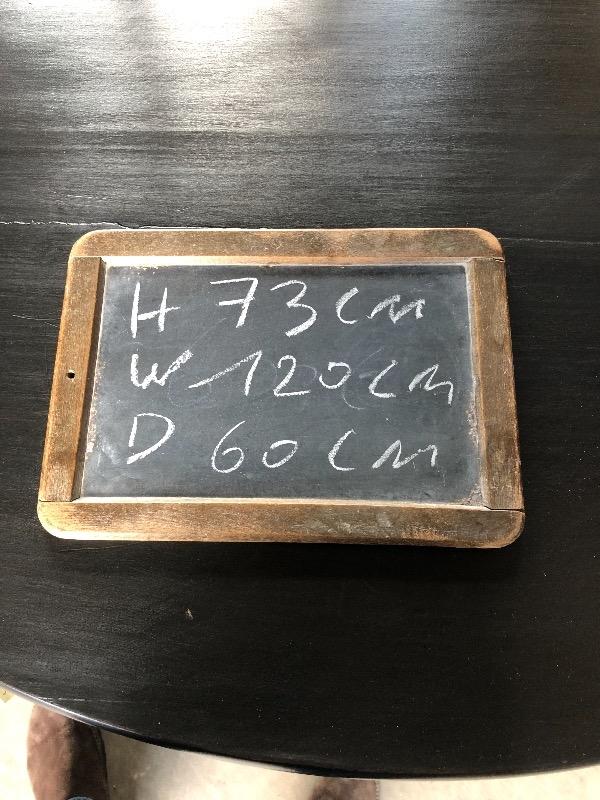 H 73 cm
W 120 cm
D 60 cm